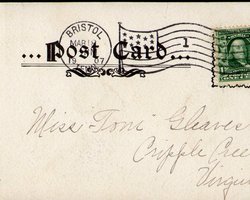 BRISTOL
MAR
19 07
TENN.
1
...Post Card...
Miss "Toni" Gleaves
Cripple Cree
Virgin